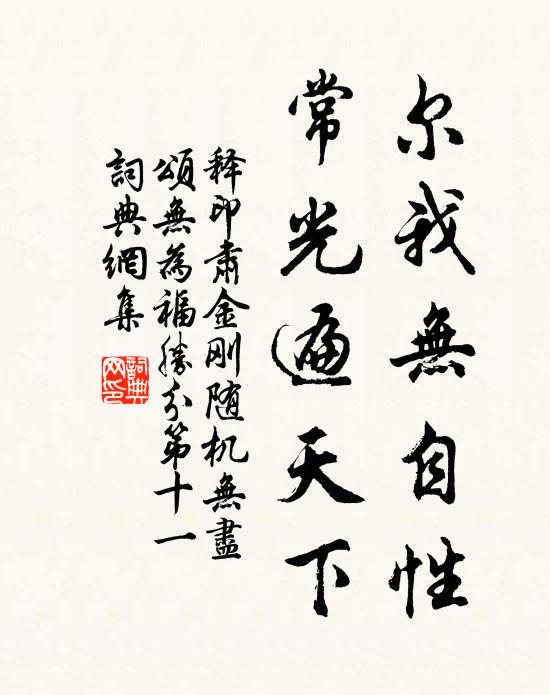 尔我無自性
常光遍天下
释印肅金刚随机無盡
頌無為福勝分第十一
詞典網集
詞典網印